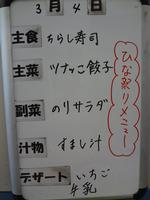 3月4日
主食 ちらし寿司
主菜 ツナっこ餃子
副菜 のりサラダ
汁物 すまし汁
デザート いちご
牛乳
ひな祭りメニュー